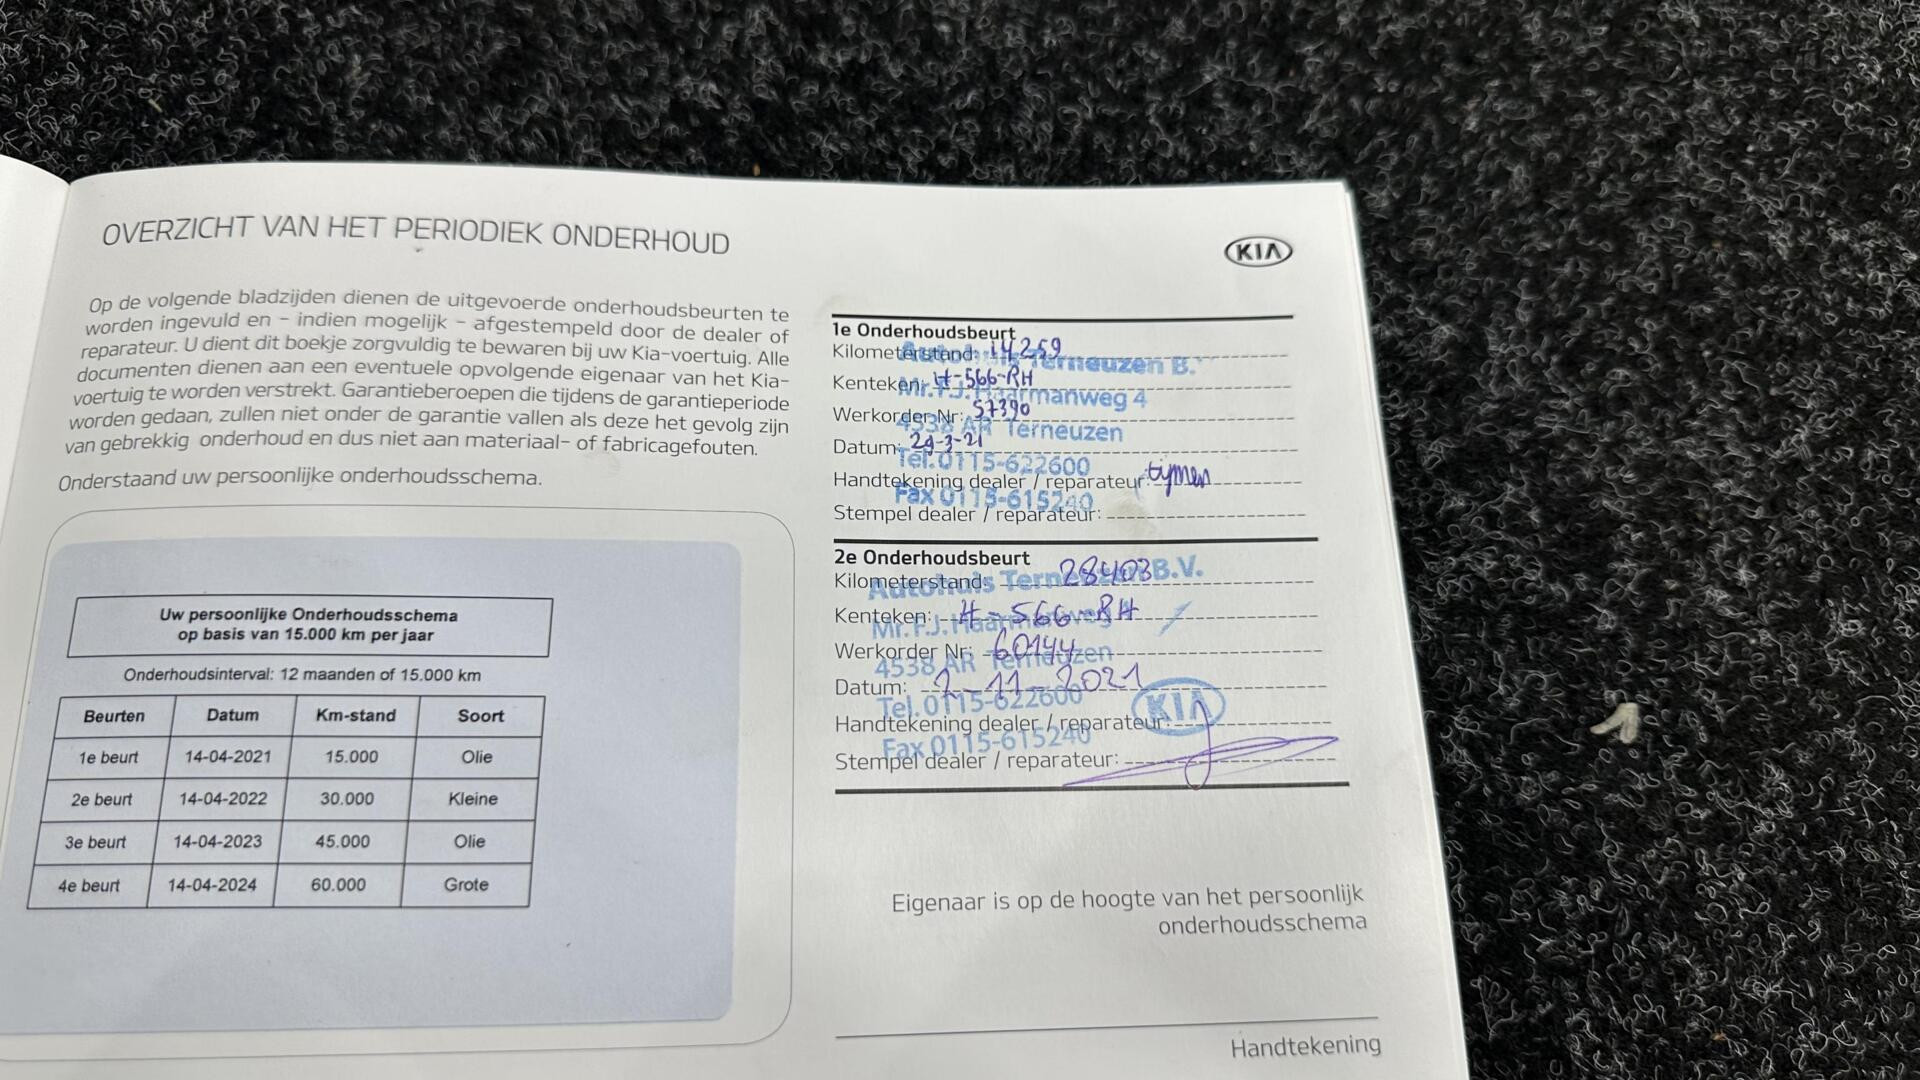 OVERZICHT VAN HET PERIODIEK ONDERHOUD
KIA
Op de volgende bladzijden dienen de uitgevoerde onderhoudsbeurten te
worden ingevuld en – indien mogelijk – afgestempeld door de dealer of
reparateur. U dient dit boekje zorgvuldig te bewaren bij uw Kia-voertuig. Alle
documenten dienen aan een eventuele opvolgende eigenaar van het Kia-
voertuig te worden verstrekt. Garantieberoepen die tijdens de garantieperiode
worden gedaan, zullen niet onder de garantie vallen als deze het gevolg zijn
van gebrekkig onderhoud en dus niet aan materiaal- of fabricagefouten.
Onderstaand uw persoonlijke onderhoudsschema.
Uw persoonlijke Onderhoudsschema
op basis van 15.000 km per jaar
Onderhoudsinterval: 12 maanden of 15.000 km
Beurten Datum Km-stand Soort
1e beurt 14-04-2021 15.000 Olie
2e beurt 14-04-2022 30.000 Kleine
3e beurt 14-04-2023 45.000 Olie
4e beurt 14-04-2024 60.000 Grote
1e Onderhoudsbeurt
Kilometerstand: 14259
Kenteken: H-566-RH
Werkorder Nr: 57390
Datum: 29-3-21
Handtekening dealer / reparateur: tymen
Stempel dealer / reparateur:
Autohuis Terneuzen B.
Mr. F.J. Haarmanweg 4
4538 AR Terneuzen
Tel. 0115-622600
Fax 0115-615240
2e Onderhoudsbeurt
Kilometerstand: 28403
Kenteken: H-566-RH
Werkorder Nr: 60144
Datum: 2-11-2021
Handtekening dealer / reparateur:
Stempel dealer / reparateur:
Autohuis Terneuzen B.V.
Mr. F.J. Haarmanweg
4538 AR Terneuzen
Tel. 0115-622600
Fax 0115-615240
KIA
Eigenaar is op de hoogte van het persoonlijk
onderhoudsschema
Handtekening